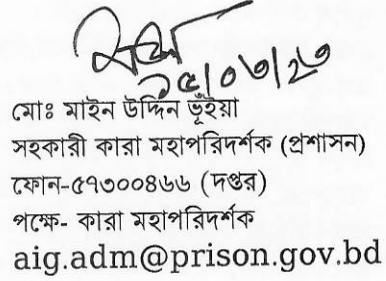 ১৫/০৩/২৩
মোঃ মাইন উদ্দিন ভূঁইয়া
সহকারী কারা মহাপরিদর্শক (প্রশাসন)
ফোন-৫৭৩০০৪৬৬ (দপ্তর)
পক্ষে- কারা মহাপরিদর্শক
aig.adm@prison.gov.bd